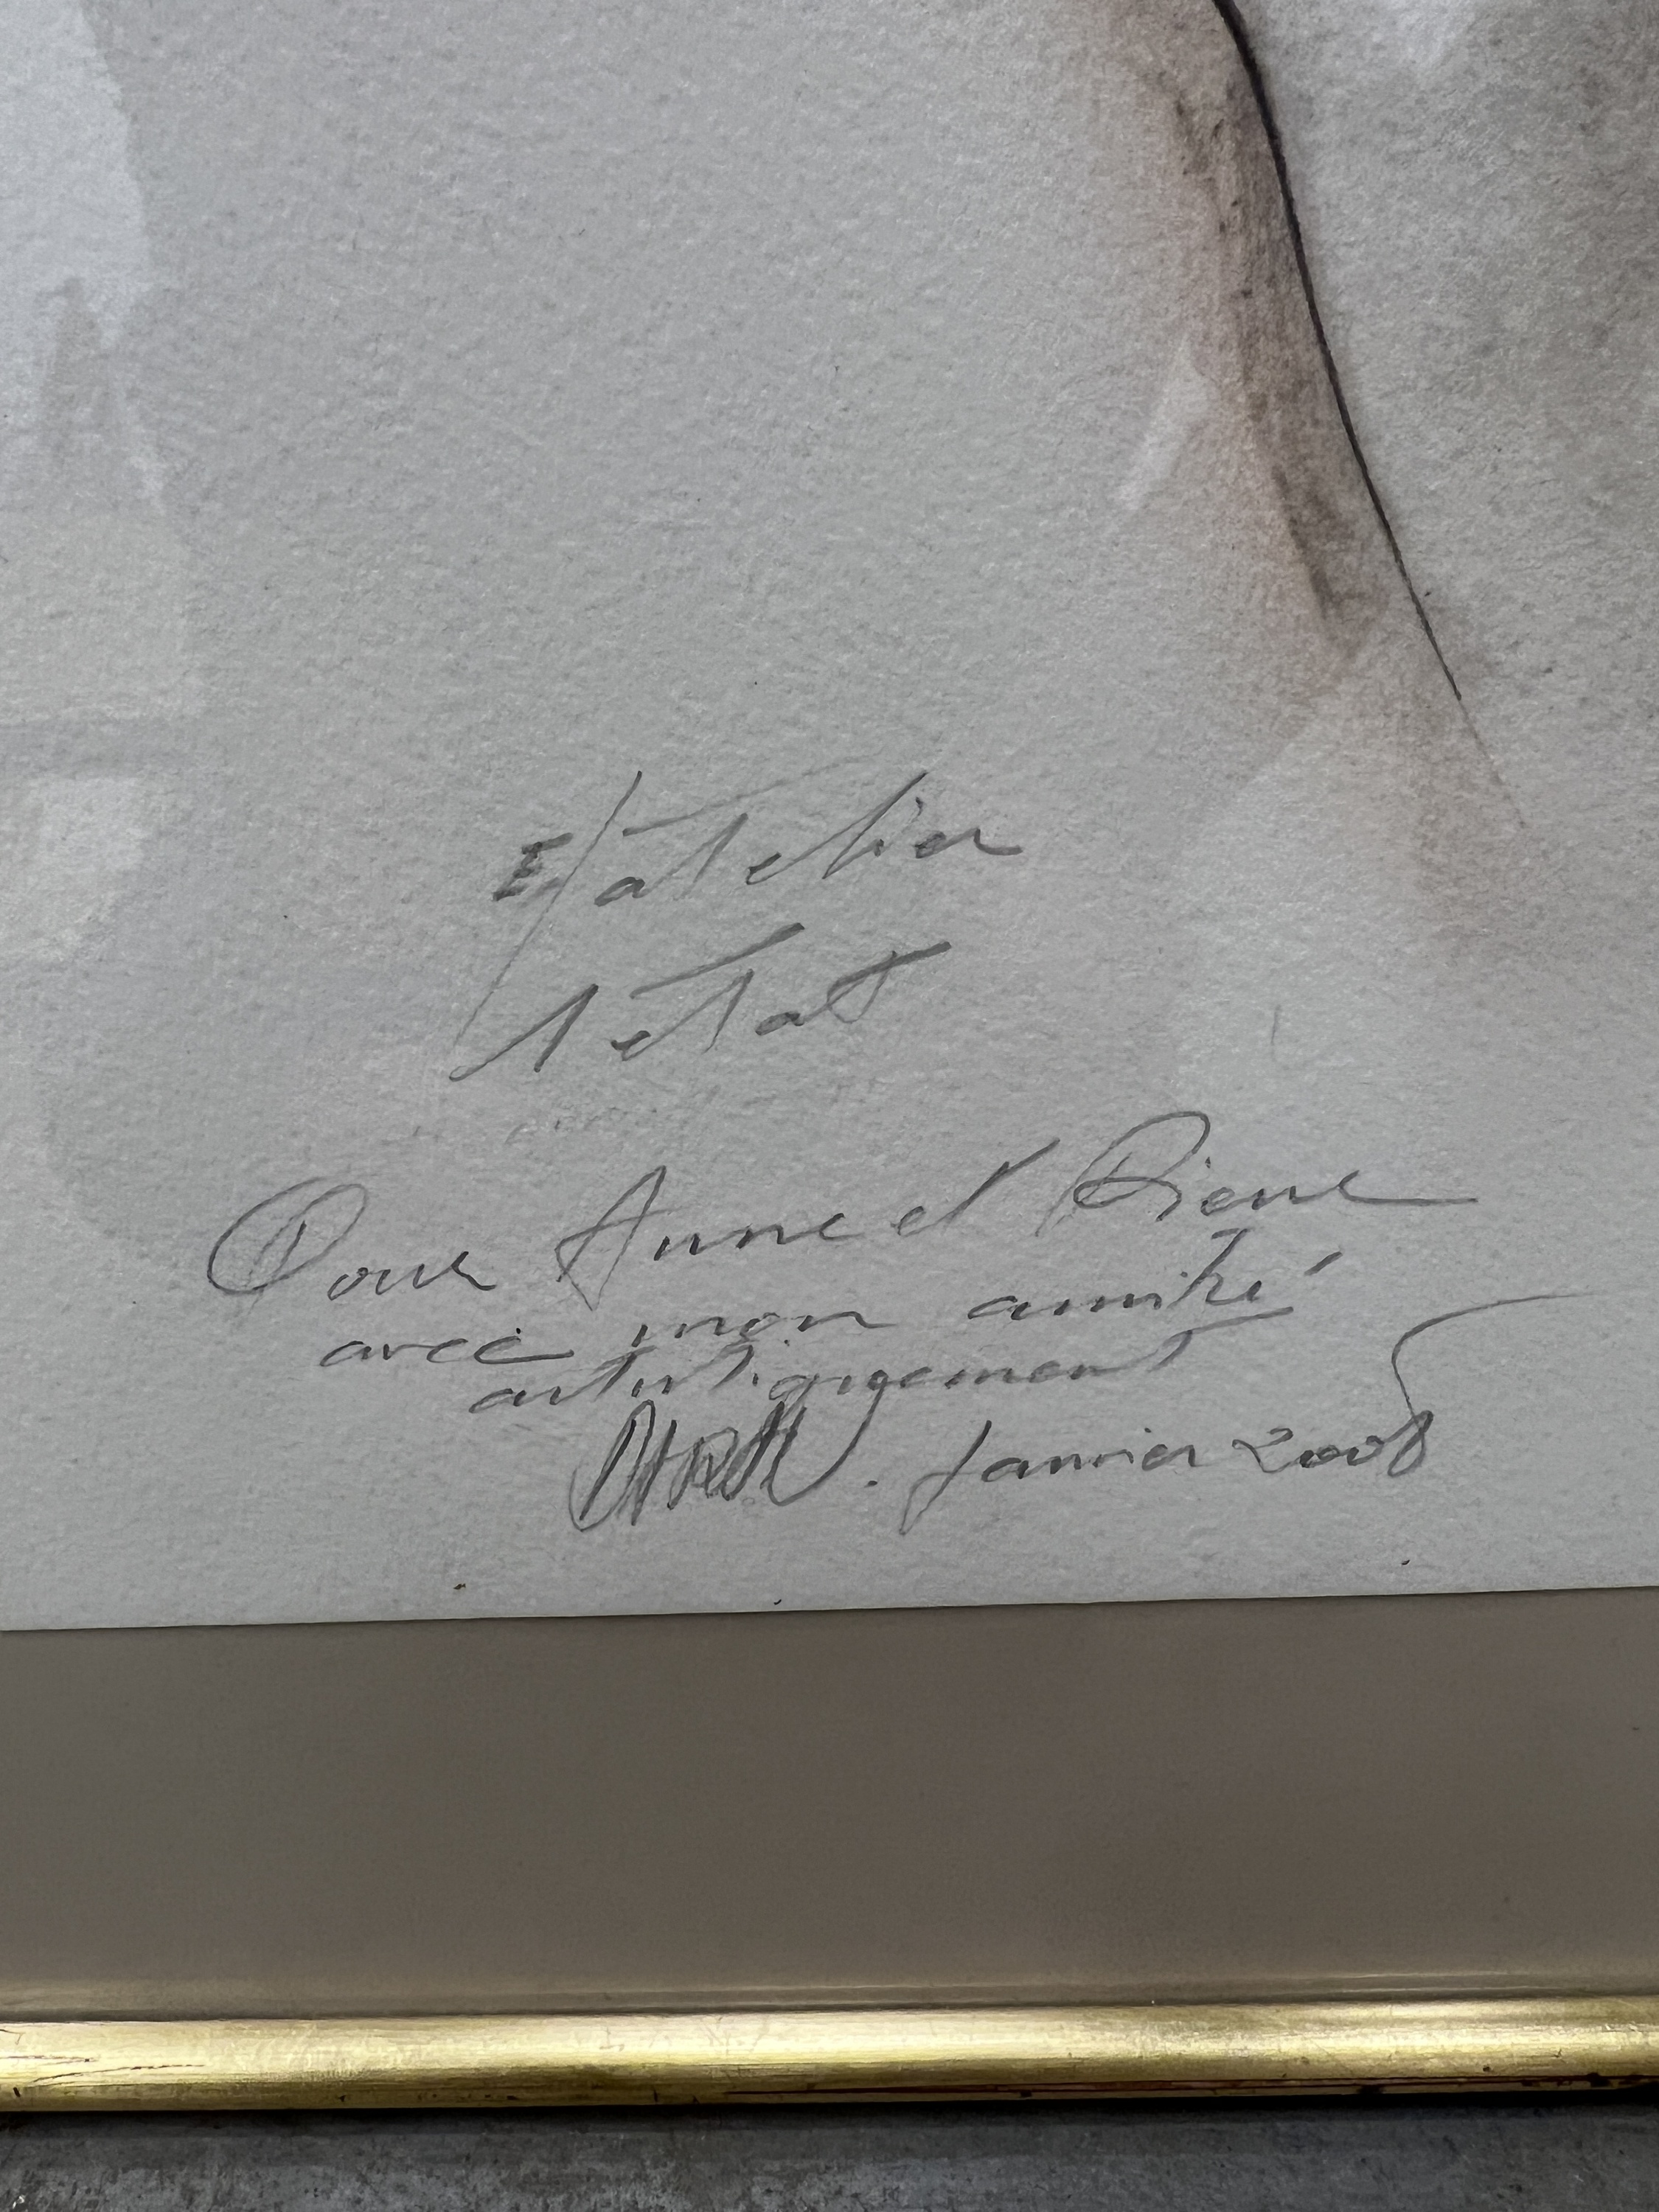 E/atelier
1 etat
Pour Anne et Pierre
avec mon amitié
artistiquement
Janvier 2008